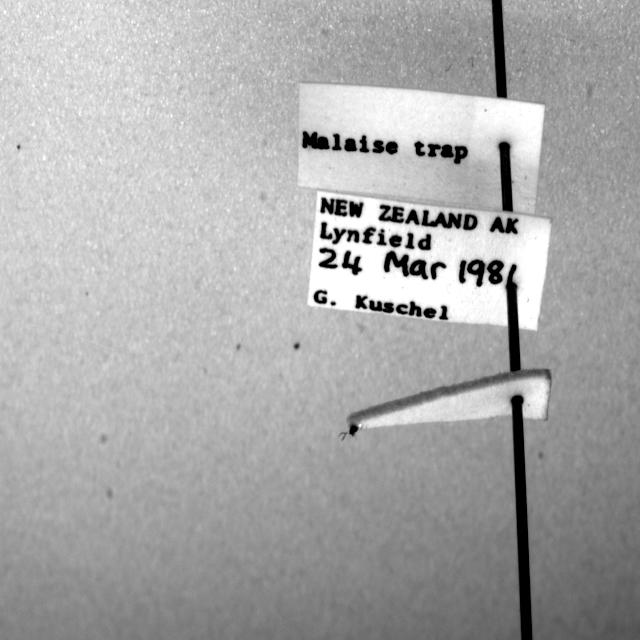 Malaise trap
NEW ZEALAND AK
Lynfield
24 Mar 1981
G. Kuschel